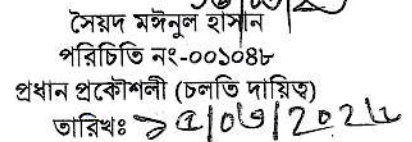 সৈয়দ মঈনুল হাসান
পরিচিতি নং-০০১০৪৮
প্রধান প্রকৌশলী (চলতি দায়িত্ব)
তারিখঃ